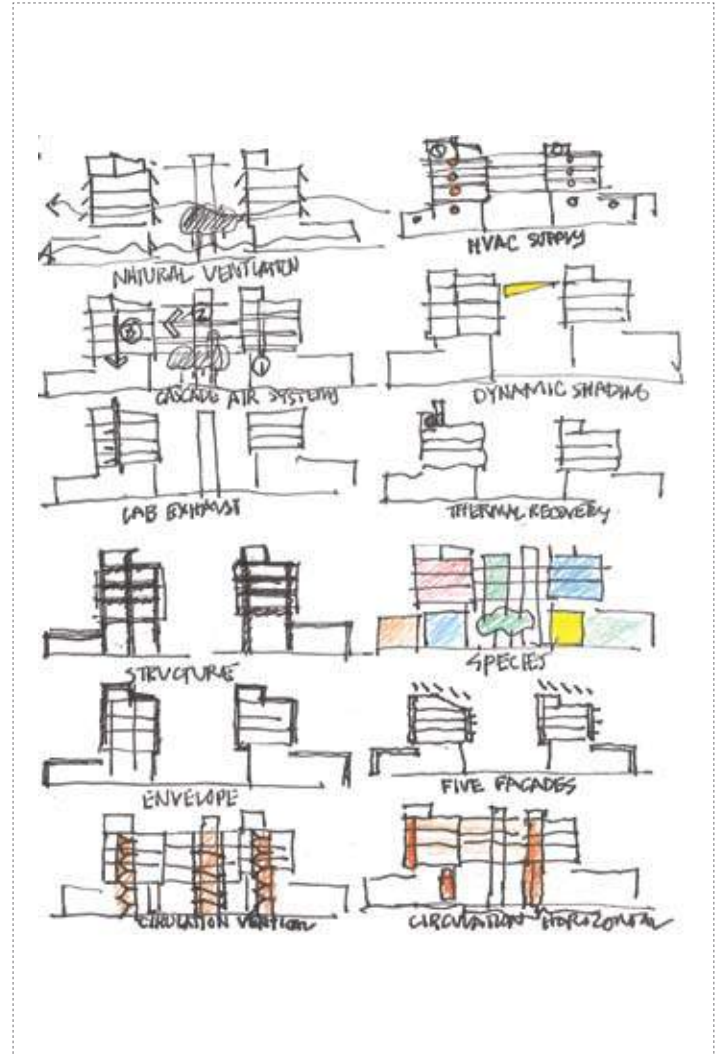 NATURAL VENTILATION
HVAC SUPPLY
3
2
1
CASCADE AIR SYSTEMS
DYNAMIC SHADING
LAB EXHAUST
THERMAL RECOVERY
STRUCTURE
SPECIES
ENVELOPE
FIVE FACADES
CIRCULATION VERTICAL
CIRCULATION HORIZONTAL